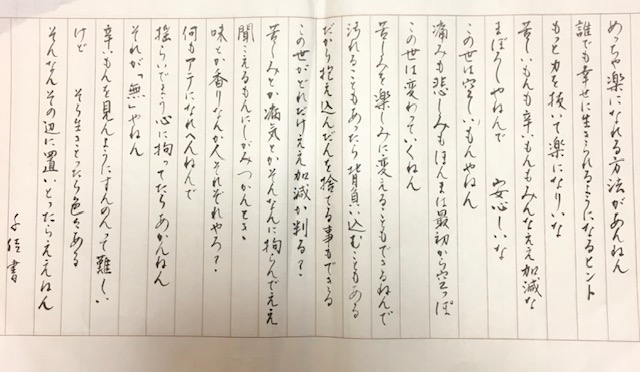 めっちゃ楽になれる方法があんねん
誰でも幸せに生きられるようになるヒント
もっと力を抜いて楽になりいな
苦しいもんも辛いもんもみんなええ加減な
まぼろしやねんで 安心しいな
この世は空しいもんやねん
痛みも悲しみもほんまは最初から空っぽ
この世は変わっていくねん
苦しみを楽しみに変えることもできるねんで
汚れることもあったら背負い込むこともある
だから抱え込んだんを捨てる事もできる
この世がどれだけええ加減か判る?
苦しみとか病気とかそんなんに拘らんでええ
聞こえるもんにしがみつかんとき
味とか香りなんか人それぞれやろ?
何もアテになれへんねんで
揺らいでまう心に拘ってたらあかんねん
それが「無」やねん
辛いもんを見んようにすんのんって難しい
けど そら生きとったら色々ある
そんなんその辺に置いとったらええねん
千佳書